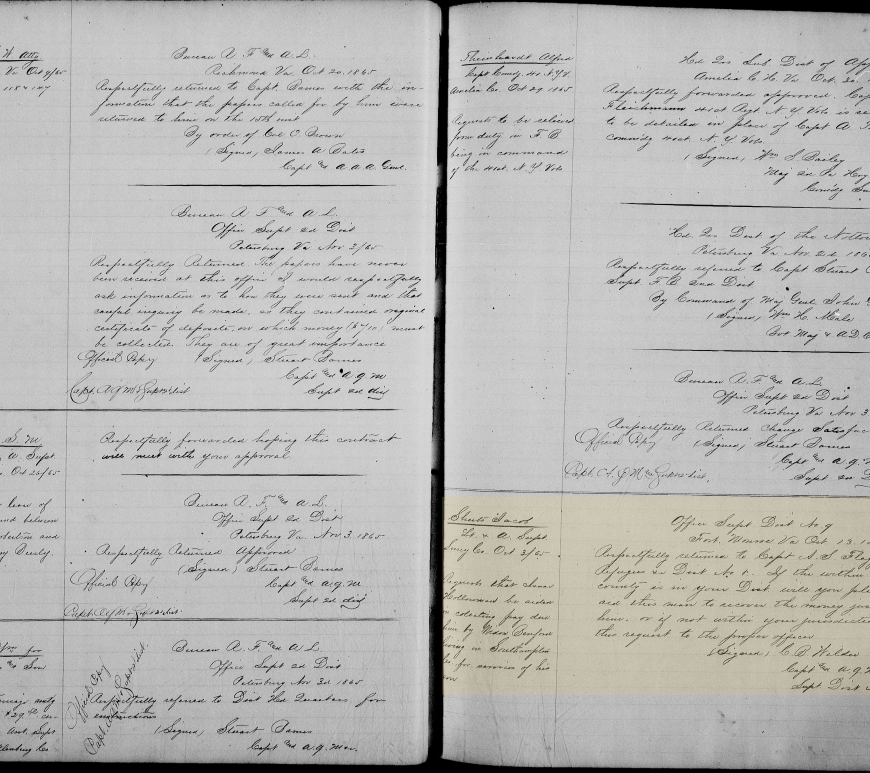 W. Atto
Va Oct 9/65
Bureau R. F. and A. L.
Richmond Va. Oct 20. 1865
Respectfully returned to Capt. Barnes with the in-
formation that the papers called for by him were
returned to him on the 15th inst
By order of Col O. Brown
(Signed) James A Bates
Capt and A. A. A. Genl.
Bureau R. F. and A. L.
Office Supt 2d Dist
Petersburg Va Nov 3/65
Respectfully Returned. The papers have never
been received at this office I would respectfully
ask information as to how they were sent and that
careful inquiry be made, as they contained original
certificate of deposite, on which money must
be collected. They are of great importance
Official Copy (Signed) Stuart Barnes
Capt and A. Q. M
Capt. A.Q.M & Supr. Dist Supt 2d Dist
S. M
A. Supt
Co. Oct 25/65
Respectfully forwarded hoping this contract
will meet with your approval
between
Bureau R. F. and A. L.
Office Supt 2d Dist
Petersburg Va. Nov 3. 1865
Respectfully Returned Approved
(Signed) Stuart Barnes
Official Copy Capt and A. Q. M
Supt 2d Dist
Capt. A.Q.M & Supr. Dist
Wm for
Bureau R. F. and A. L.
Office Supt 2d Dist
Petersburg Nov 3d 1865
Respectfully referred to Dist Hd Quarters for
instructions
(Signed) Stuart Barnes
Capt and A. Q. Mas.
Official Copy
Capt A.Q.M & Supr Dist
$29
Asst. Supt
Alfred
Capt Comdg. 41 N.Y.V.
Amelia Co. Oct 29 1865
Requests to be relieved
from duty in F B
being in command
of the 41st. N. Y. Vols
Hd. Qrs Sub Dist of
Amelia C. H. Va Oct.
Respectfully forwarded approved. Cap
Fleischmann 41st Regt. N. Y Vols is
to be detailed in place of Capt A.
comdg 41st. N. Y Vols.
(Signed) Wm S. Bailey
Maj 2d Pa
Comdg
Hd. Qrs Dist of the Notto
Petersburg Va Nov. 2d 186
Respectfully referred to Capt Stuart
Supt. F B 2nd Dist
By Command of Maj Genl. John
(Signed) Wm H. Male
Bvt Maj & A. D. C
Bureau R. F and A. L.
Office Supt 2d Dist
Petersburg Va Nov 3
Respectfully Returned Change Satisfac
Official Copy (Signed) Stuart Barnes
Capt and A. Q. M
Supt 2d D
Sheets Jacob
Lt. & A. Supt
Surry Co. Oct 3/65
Requests that
Holloway be aided
in colecting pay due
him by
living in Southampton
for services of his
son
Office Supt Dist No. 9
Fort. Monroe Va Oct 13. 1
Respectfully returned to Capt S. S. Flag
Refugees & Dist No 1. If the within
county is in your Dist. will you
aid this man to recover the money
him. or if not within your jurisdiction
this request to the proper officer
(Signed) C. B. Wilder
Capt and A. Q. M
Supt Dist